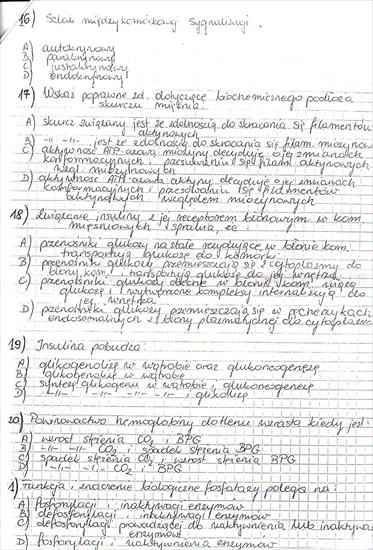 16) Szlak międzykomórkowy sygnalizacji.
A) autokrynowy
B) parakrynowy
C) jukstakrynowy
D) endokrynowy
17) Wskaż poprawne zd. dotyczące biochemicznego podłoża
skurczu mięśnia:
A) skurcz związany jest ze zdolnością do skracania się filamentów
aktynowych
B) -11- -11- jest ze zdolnością do skracania się filam. miozynow.
C) aktywność ATP-azowa miozyny decyduje o jej zmianach
konformacyjnych i przesuwaniu się filam. aktynowych
wzgl. miozynowych
D) aktywność ATP-azowa aktyny decyduje o jej zmianach
konformacyjnych i przesuwaniu się filamentów
aktynowych względem miozynowych
18) Związanie insuliny z jej receptorem błonowym w kom.
mięśniowych sprawia, że:
A) przenośniki glukozy na stałe rezydujące w błonie kom.
transportują glukozę do komórki
B) przenośniki glukozy przemieszczają się z cytoplazmy do
błony kom. i transportują glukozę do jej wnętrza
C) przenośniki glukozy obecne w błonie kom. wiążą
glukozę i wytworzone kompleksy internalizują do
jej wnętrza
D) przenośniki glukozy przemieszczają się w pęcherzykach
endosomalnych z błony plazmatycznej do cytoplazmy
19) Insulina pobudza:
A) glikogenolizę w wątrobie oraz glukoneogenezę
B) glikogenolizę w wątrobie
C) syntezę glikogenu w wątrobie i glukoneogenezę
D) -11- -11- -11- -11- i glikolizę
20) Powinowactwo hemoglobiny do tlenu wzrasta kiedy jest:
A) wzrost stężenia CO2 i BPG
B) -11- -11- CO2 i spadek stężenia BPG
C) spadek stężenia CO2 i wzrost stężenia BPG
D) -11- -11- CO2 i BPG
1) Funkcja i znaczenie biologiczne fosfatazy polega na:
A) fosforylacji i inaktywacji enzymów
B) defosforylacji i inaktywacji enzymów
C) defosforylacji prowadzącej do uaktywnienia lub inaktywa
enzymów
D) fosforylacji i uaktywnienia enzymów